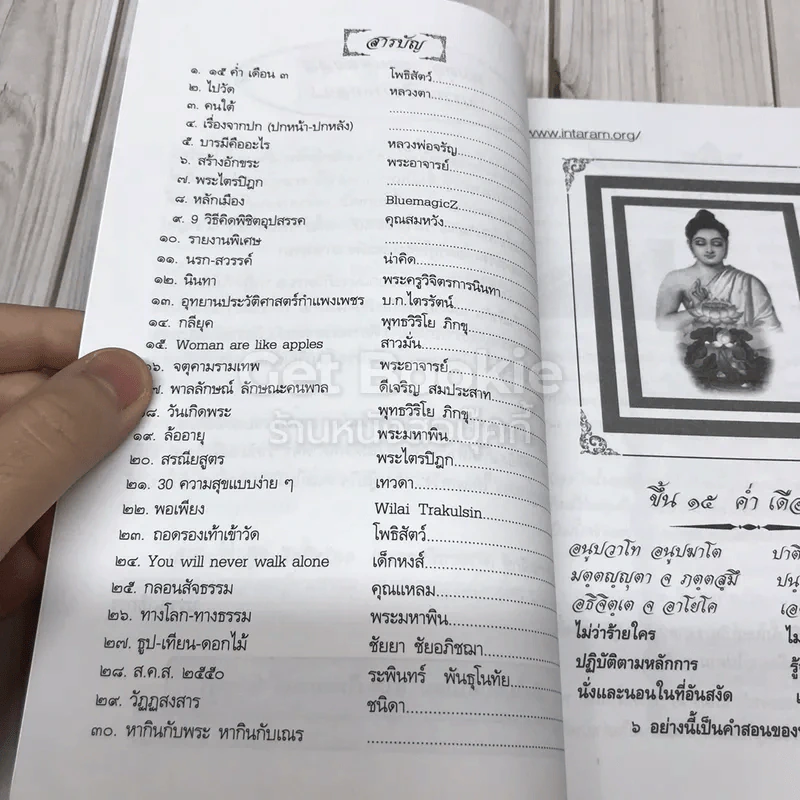 สารบัญ
๑. ๑๕ ค่ำ เดือน ๓ โพธิสัตว์
๒. ไปวัด หลวงตา
๓. คนใต้
๔. เรื่องจากปก (ปกหน้า-ปกหลัง)
๕. บารมีคืออะไร หลวงพ่อจรัญ
๖. สร้างอักขระ พระอาจารย์
๗. พระไตรปิฎก
๘. หลักเมือง BluemagicZ
๙. 9 วิธีคิดพิชิตอุปสรรค คุณสมหวัง
๑๐. รายงานพิเศษ
๑๑. นรก-สวรรค์ น่าคิด
๑๒. นินทา พระครูวิจิตรการนินทา
๑๓. อุทยานประวัติศาสตร์กำแพงเพชร บ.ก.ไตรรัตน์
๑๔. กลียุค พุทธวิริโย ภิกขุ
๑๕. Woman are like apples สาวมั่น
๑๖. จตุคามรามเทพ พระอาจารย์
๑๗. พาลลักษณ์ ลักษณะคนพาล ดีเจริญ สมประสาท
๑๘. วันเกิดพระ พุทธวิริโย ภิกขุ
๑๙. ล้ออายุ พระมหาพิน
๒๐. สรณียสูตร พระไตรปิฎก
๒๑. 30 ความสุขแบบง่าย ๆ เทวดา
๒๒. พอเพียง Wilai Trakulsin
๒๓. ถอดรองเท้าเข้าวัด โพธิสัตว์
๒๔. You will never walk alone เด็กหงส์
๒๕. กลอนสัจธรรม คุณแหลม
๒๖. ทางโลก-ทางธรรม พระมหาพิน
๒๗. ธูป-เทียน-ดอกไม้ ชัยยา ชัยอภิชฌา
๒๘. ส.ค.ส. ๒๕๕๐ ระพินทร์ พันธุโนทัย
๒๙. วัฏฏสงสาร ชนิดา
๓๐. หากินกับพระ หากินกับเณร
Get Bookie
ร้านหนังสือบุ๊คกี้
www.intaram.org/
ขึ้น ๑๕ ค่ำ เดือ
อนูปวาโท อนูปฆาโต ปาติ
มตฺตญฺญุตา จ ภตฺตสฺมึ ปนฺ
อธิจิตฺเต จ อาโยโค เอ
ไม่ว่าร้ายใคร ไม
ปฏิบัติตามหลักการ รู้
นั่งและนอนในที่อันสงัด
๖ อย่างนี้เป็นคำสอนของ